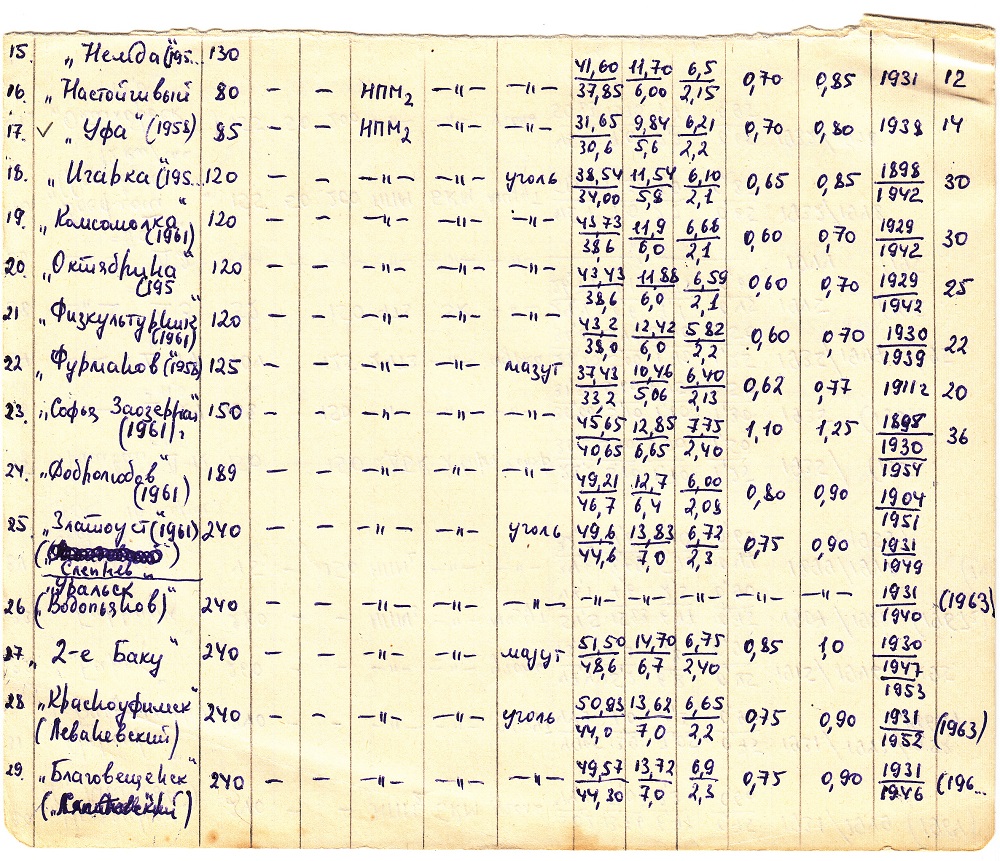 15. „Немда“ (195... 130
16. „Настойчивый 80 – – НПМ₂ –"– –"– 41,60/37,85 11,70/6,00 6,5/2,15 0,70 0,85 1931 12
17. ✓ „Уфа“ (1958) 85 – – НПМ₂ –"– –"– 31,65/30,6 9,84/5,6 6,21/2,2 0,70 0,80 1938 14
18. „Игарка“ (195... 120 – – –"– –"– уголь 38,54/34,00 11,54/5,8 6,10/2,1 0,65 0,85 1898/1942 30
19. „Комсомолка“ 120 – – –"– –"– –"– 43,73/38,6 11,9/6,0 6,68/2,1 0,60 0,70 1929/1942 30
(1961)
20. „Октябрина“ 120 – – –"– –"– –"– 43,43/38,6 11,88/6,0 6,59/2,1 0,60 0,70 1929/1942 25
(195
21 „Физкультурник“ 120 – – –"– –"– –"– 43,2/38,0 12,42/6,0 5,82/2,2 0,60 0,70 1930/1939 22
(1961)
22 „Фурманов“ (1958) 125 – – –"– –"– мазут 37,43/33,2 10,46/5,06 6,40/2,13 0,62 0,77 1911г 20
23. „Софья Заозерная“ 150 – – –"– –"– –"– 45,65/40,65 12,85/6,65 7,75/2,40 1,10 1,25 1898/1930/1954 36
(1961) г
24. „Добролюбов“ 189 – – –"– –"– –"– 49,21/46,7 12,7/6,4 6,00/2,08 0,80 0,90 1904/1951
(1961)
25 „Златоуст“ (1961) 240 – – –"– –"– уголь 49,6/44,6 13,83/7,0 6,72/2,3 0,75 0,90 1931/1949
Слепнев
„Уральск“
26 (Водопьянов) 240 – – –"– –"– –"– –"– –"– –"– –"– –"– 1931/1940 (1963)
27 „2-е Баку“ 240 – – –"– –"– мазут 51,50/48,6 14,70/6,7 6,75/2,40 0,85 1,0 1930/1947/1953
28 „Красноуфимск“ 240 – – –"– –"– уголь 50,93/44,0 13,62/7,0 6,65/2,2 0,75 0,90 1931/1952 (1963)
(Леваневский)
29. „Благовещенск“ 240 – – –"– –"– –"– 49,57/44,30 13,72/7,0 6,9/2,3 0,75 0,90 1931/1946 (196...